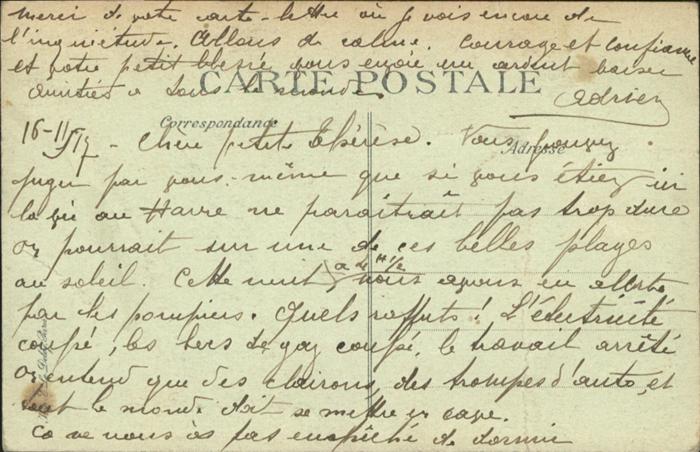 merci de votre carte-lettre où je vois encore de
l'inquiétude. Allons du calme. Courage et confiance
et votre petit blessé vous envoie un ardent baiser
Amitiés à tous le monde
Adrien
CARTE POSTALE
Correspondance
Adresse
16-11/17 - Chère petite Thérèse. Vous pouvez
juger par vous-même que si vous étiez ici
la vie au Havre ne paraîtrait pas trop dure
on pourrait sur une de ces belles plages
au soleil. Cette nuit, à 2H 1/2 nous avons eu alerte
par les pompiers. Quels raffuts! L'électricité
coupé, les becs de gaz coupé, le travail arrêté
On entend que des clairons, des trompes d'auto, et
tout le monde doit se mettre en cave.
Ca ne nous as pas empêché de dormir